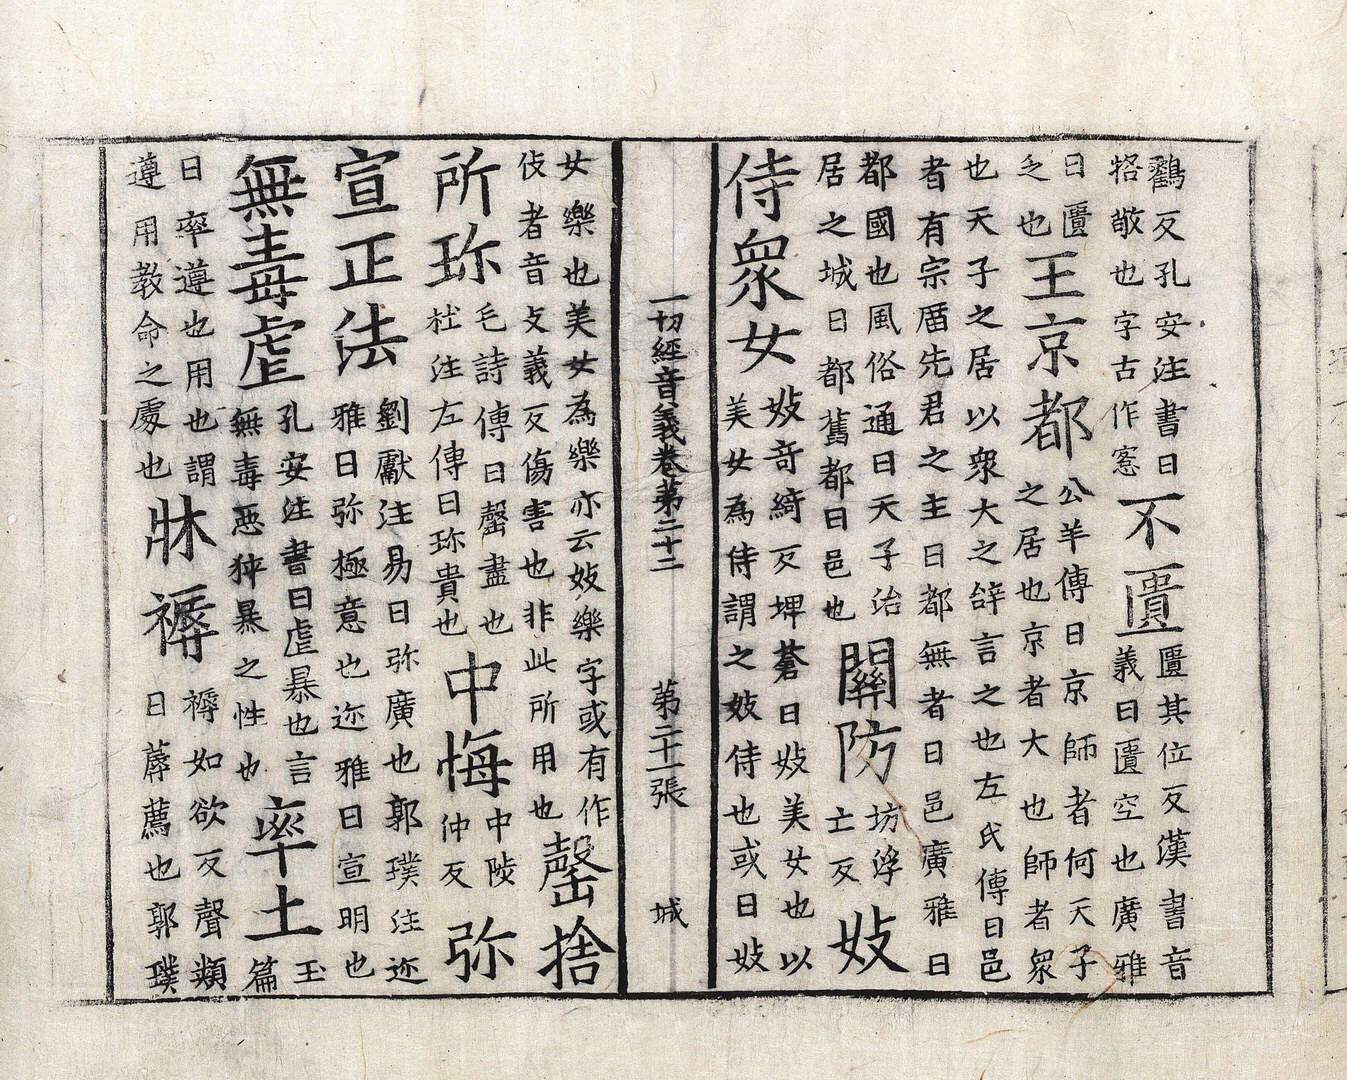 鸛反孔安注書曰
恪敬也字古作窓
不匱
匱其位反漢書音
義曰匱空也廣雅
曰匱
乏也
王京都
公羊傳曰京師者何天子
之居也京者大也師者衆
也天子之居以衆大之辝言之也左氏傳曰邑
者有宗庿先君之主曰都無者曰邑廣雅曰
都國也風俗通曰天子治
居之城曰都舊都曰邑也
關防
坊浮
亡反
妓
侍衆女
妓奇綺反埤蒼曰妓美女也以
美女為侍謂之妓侍也或曰妓
一切經音義卷第二十二 第二十一張 城
女樂也美女為樂亦云妓樂字或有作
伎者音攴義反傷害也非此所用也
罄捨
所珎
毛詩傳曰罄盡也
杜注左傳曰珎貴也
中悔
中陵
仲反
弥
宣正法
劉瓛注易曰弥廣也郭璞注迩
雅曰弥極意也迩雅曰宣明也
無毒虐
孔安注書曰虐暴也言
無毒惡暴之性也
率土
玉
篇
曰率遵也用也謂
遵用教命之處也
牀褥
褥如欲反聲類
曰蓐薦也郭璞